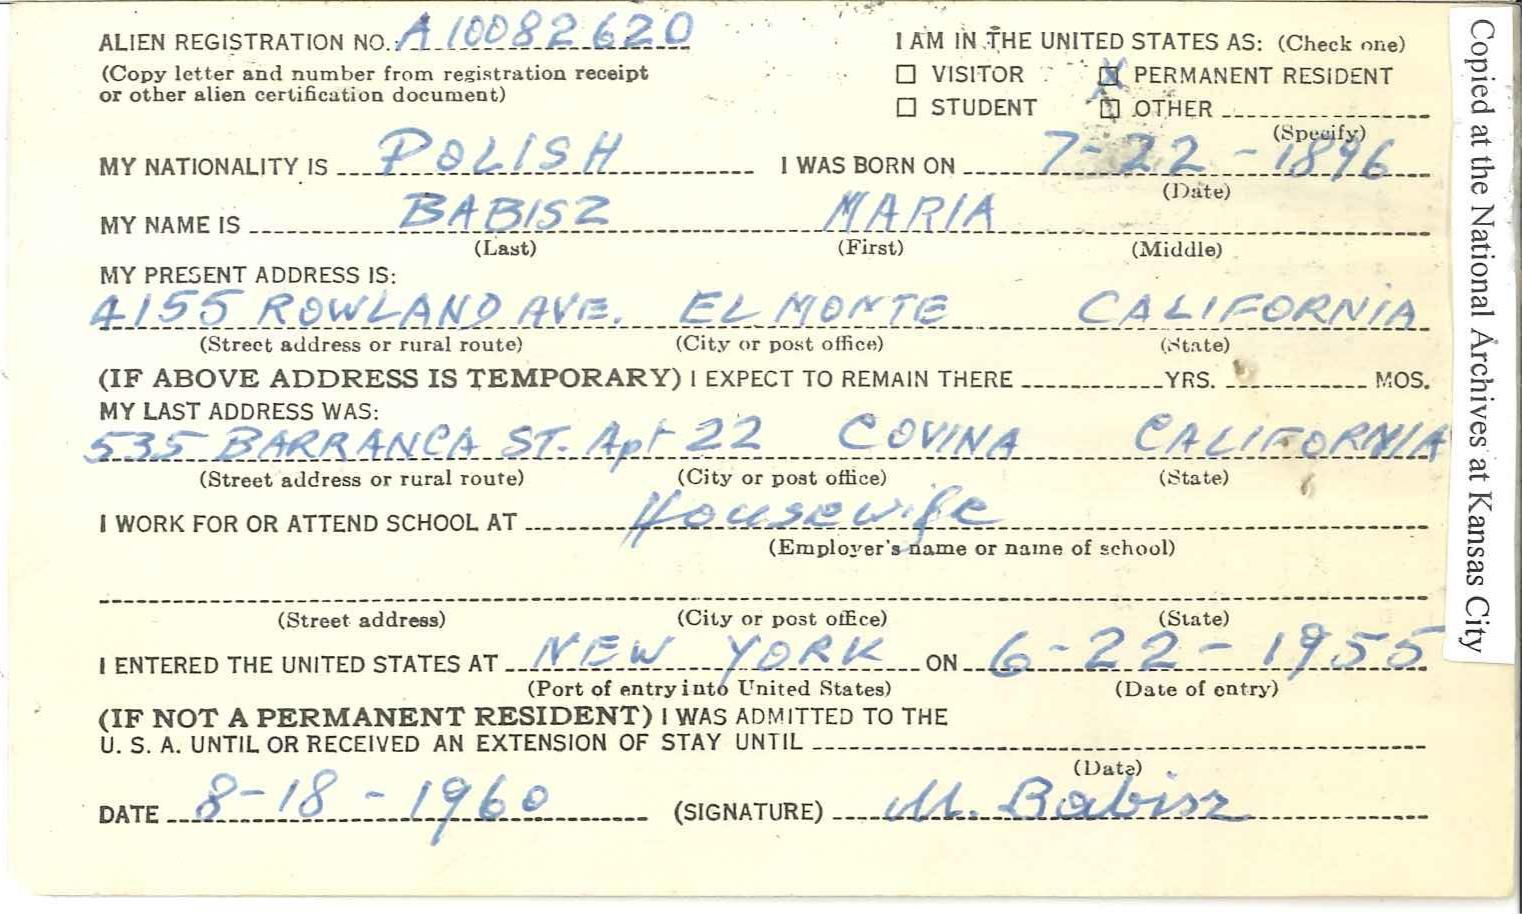 ALIEN REGISTRATION NO. A10082620
(Copy letter and number from registration receipt
or other alien certification document)
I AM IN THE UNITED STATES AS: (Check one)
☐ VISITOR ☒ PERMANENT RESIDENT
☐ STUDENT ☐ OTHER
(Specify)
MY NATIONALITY IS POLISH I WAS BORN ON 7-22-1896
(Date)
MY NAME IS BABISZ MARIA
(Last) (First) (Middle)
MY PRESENT ADDRESS IS:
4155 ROWLAND AVE. EL MONTE CALIFORNIA
(Street address or rural route) (City or post office) (State)
(IF ABOVE ADDRESS IS TEMPORARY) I EXPECT TO REMAIN THERE YRS. MOS.
MY LAST ADDRESS WAS:
535 BARRANCA ST. Apt 22 COVINA CALIFORNIA
(Street address or rural route) (City or post office) (State)
I WORK FOR OR ATTEND SCHOOL AT Housewife
(Employer's name or name of school)
(Street address) (City or post office) (State)
I ENTERED THE UNITED STATES AT NEW YORK ON 6-22-1955
(Port of entry into United States) (Date of entry)
(IF NOT A PERMANENT RESIDENT) I WAS ADMITTED TO THE
U. S. A. UNTIL OR RECEIVED AN EXTENSION OF STAY UNTIL
(Date)
DATE 8-18-1960 (SIGNATURE) M. Babisz
Copied at the National Archives at Kansas City